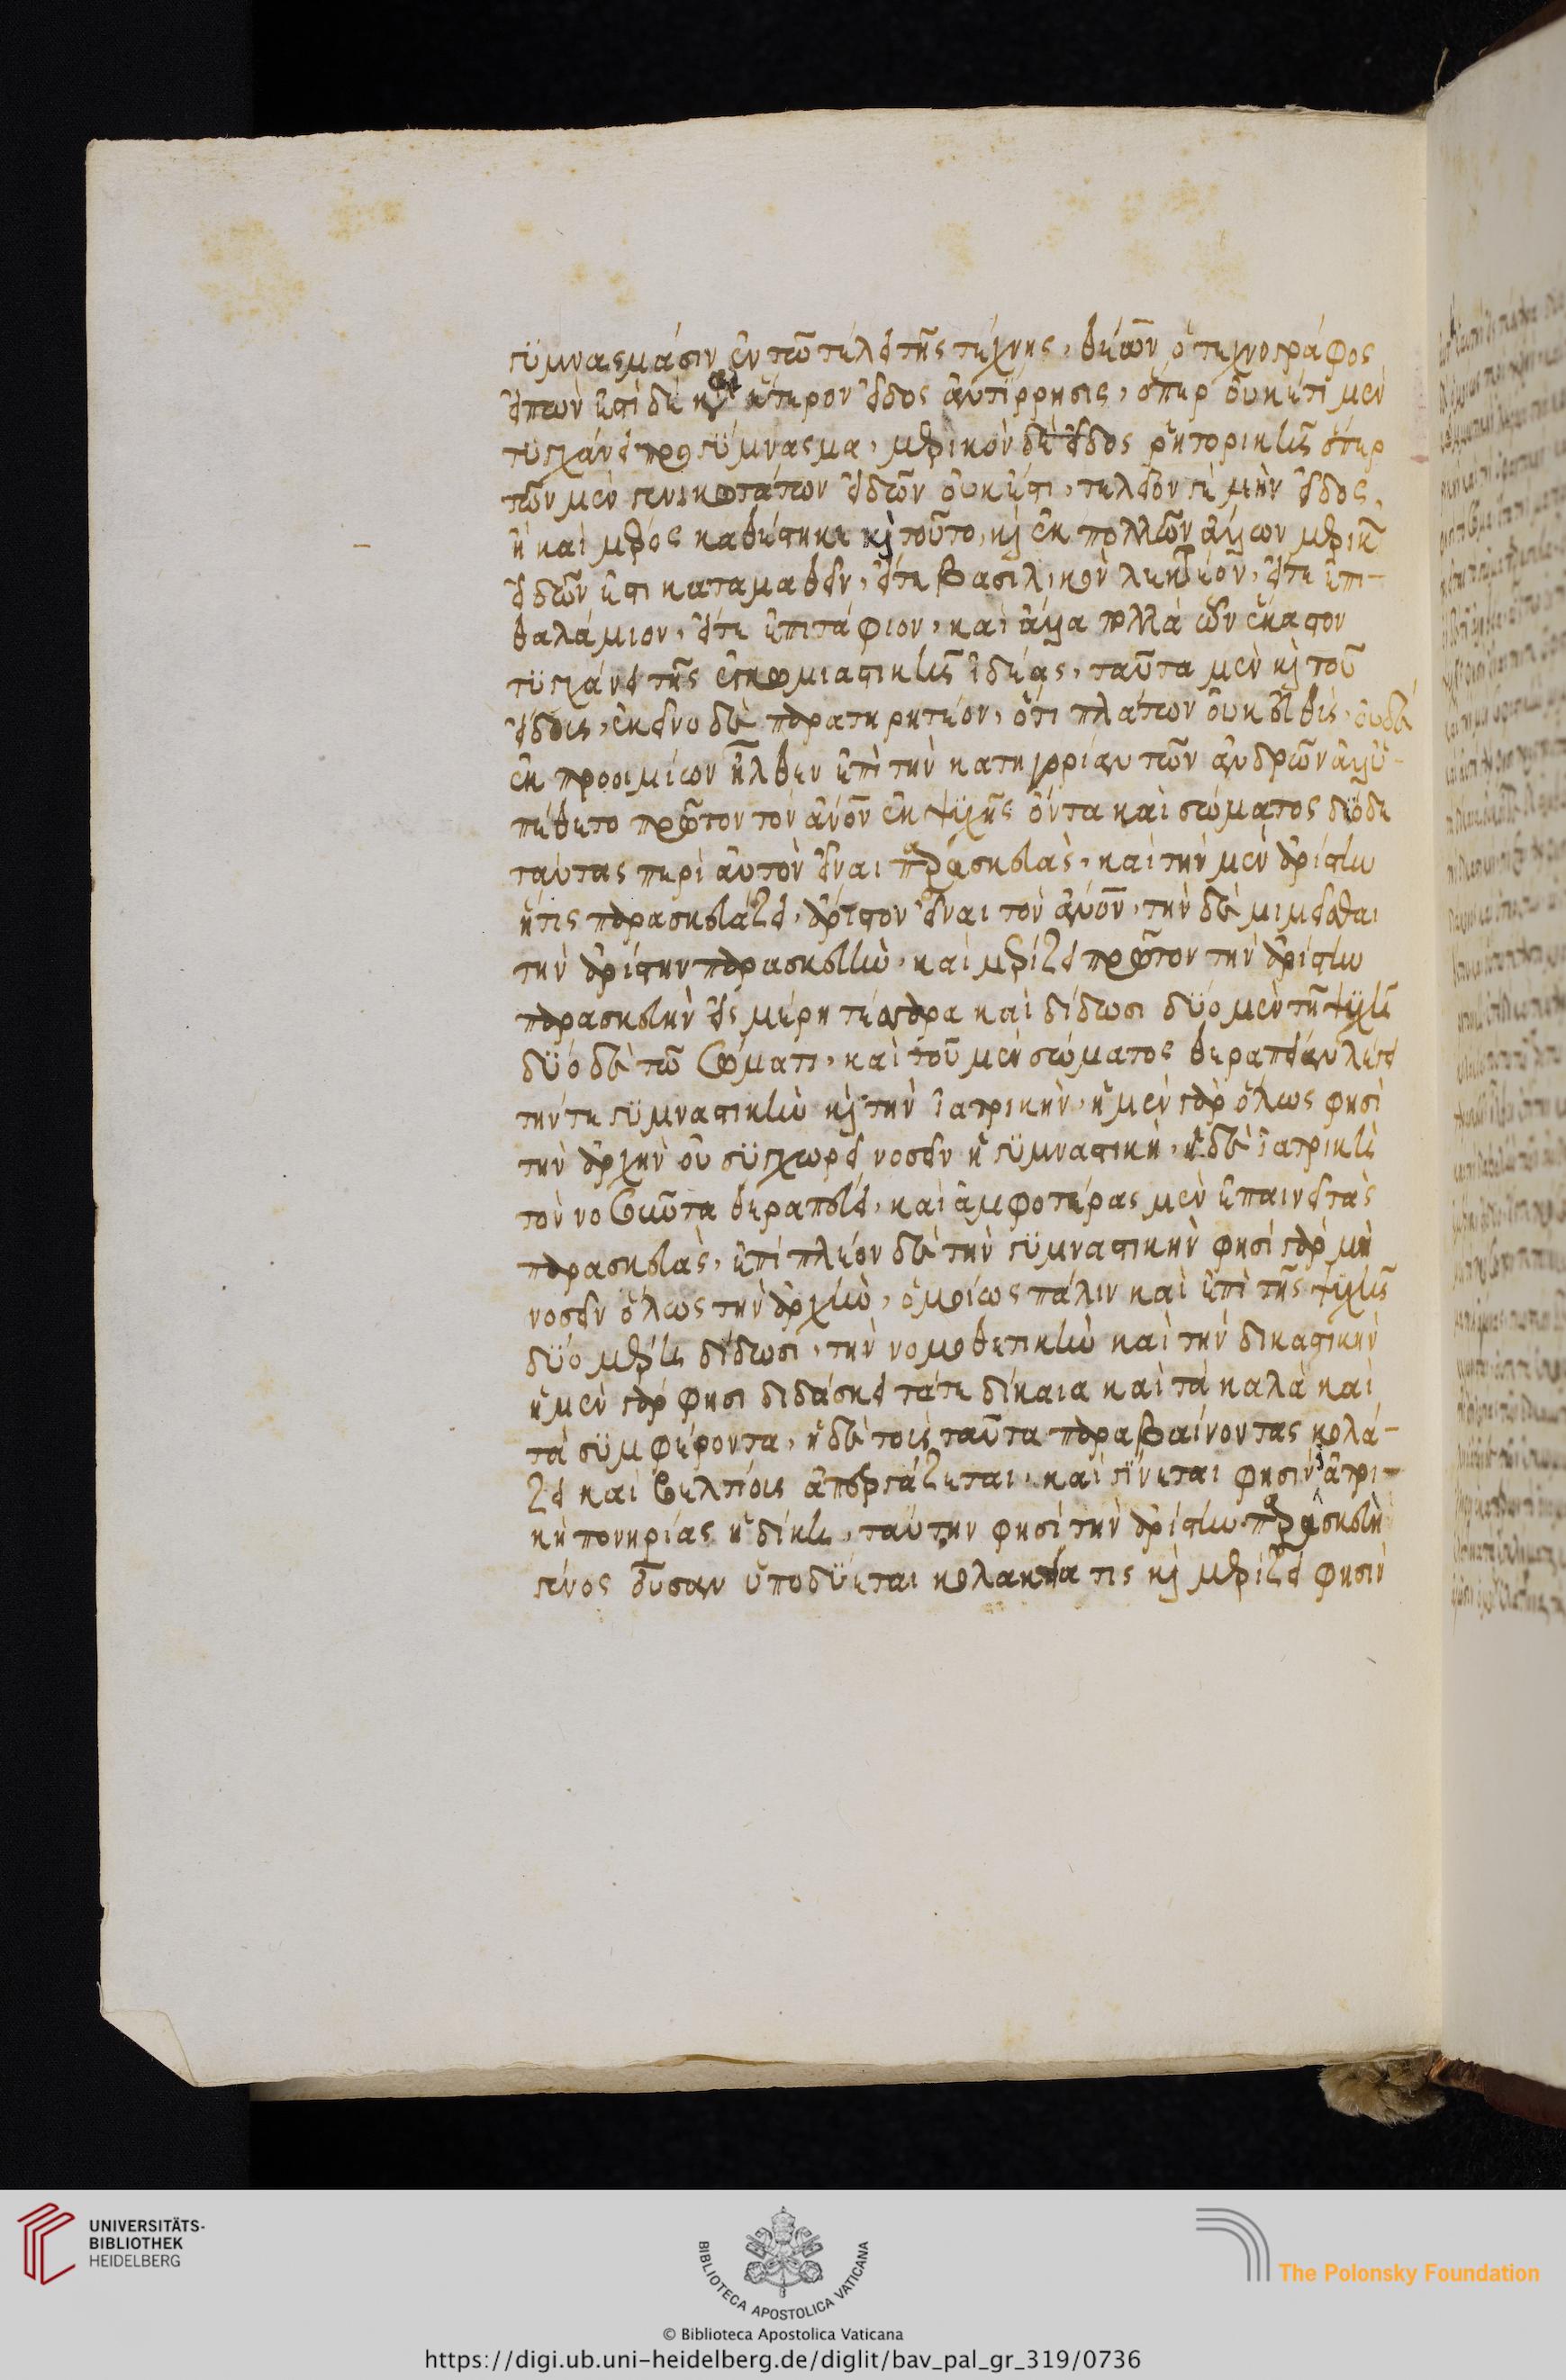 γυμνάσμασιν ἐν τῷ τέλει τῆς τέχνης, θεάων ὁ τεχνογράφος
εἰπών ἐστι δὲ καὶ ἕτερον εἶδος ἀντίρρησις, ὅπερ οὐκέτι μὲν
τυγχάνει προγύμνασμα, μερικὸν δὲ εἶδος ῥητορικῆς ὅπερ
τῶν μὲν γενικωτάτων εἰδῶν οὐκ ἔστι, τέλειον γε μὴν εἶδος,
ἢ καὶ μέρος καθέστηκε καὶ τοῦτο, καὶ ἐκ πολλῶν ἄλλων μερικῶν
εἰδῶν ἔστι καταμαθεῖν, εἴτε βασιλικὸν λεκτέον, εἴτε ἐπι-
θαλάμιον, εἴτε ἐπιτάφιον, καὶ ἄλλα πολλὰ ὧν ἕκαστον
τυγχάνει τῆς ἐγκωμιαστικῆς ἰδέας, ταῦτα μὲν καὶ τοῦ
εἴδους, ἐκεῖνο δὲ παρατηρητέον, ὅτι πλάτων οὐκ εὐθὺς, οὐδὲ
ἐκ προοιμίων ἦλθεν ἐπὶ τὴν κατηγορίαν τῶν ἀνδρῶν ἀλλ' ὑ-
πέθετο πρῶτον τὸν ἄνον ἐκ ψυχῆς ὄντα καὶ σώματος δύο δὲ
ταύτας περὶ αὐτὸν εἶναι παρασκευὰς, καὶ τὴν μὲν ἀρίστην
ἥτις παρασκευάζει, ἄριστον εἶναι τὸν ἄνον, τὴν δὲ μιμεῖσθαι
τὴν ἀρίστην παρασκευὴν, καὶ μερίζει πρῶτον τὴν ἀρίστην
παρασκευὴν εἰς μέρη τέσσαρα καὶ δίδωσι δύο μὲν τῇ ψυχῇ
δύο δὲ τῷ σώματι, καὶ τοῦ μὲν σώματος θεραπείαν λέγει
τήν τε γυμναστικὴν καὶ τὴν ἰατρικὴν, ἡ μὲν γὰρ ὅλως φησὶ
τὴν ἀρχὴν οὐ συγχωρεῖ νοσεῖν ἡ γυμναστικὴ, ἡ δὲ ἰατρικὴ
τὸν νοσοῦντα θεραπεύει, καὶ ἀμφοτέρας μὲν ἐπαινεῖ τὰς
παρασκευὰς, ἐπὶ πλέον δὲ τὴν γυμναστικὴν φησὶ γὰρ μὴ
νοσεῖν ὅλως τὴν ἀρχὴν, ὁμοίως πάλιν καὶ ἐπὶ τῆς ψυχῆς
δύο μέρη δίδωσι, τὴν νομοθετικὴν καὶ τὴν δικαστικὴν
ἡ μὲν γὰρ φησι διδάσκει τά τε δίκαια καὶ τὰ καλὰ καὶ
τὰ συμφέροντα, ἡ δὲ τοὺς ταῦτα παραβαίνοντας κολά-
ζει καὶ βελτίους ἀπεργάζεται, καὶ γίνεται φησὶν ἰατρι-
κὴ πονηρίας ἡ δίκη, ταύτην φησὶ τὴν ἀρίστην παρασκευὴν
γένος οὖσαν ὑποδύεται κολακεία τις καὶ μερίζει φησὶν
UNIVERSITÄTS-
BIBLIOTHEK
HEIDELBERG
BIBLIOTECA APOSTOLICA VATICANA
The Polonsky Foundation
© Biblioteca Apostolica Vaticana
https://digi.ub.uni-heidelberg.de/diglit/bav_pal_gr_319/0736